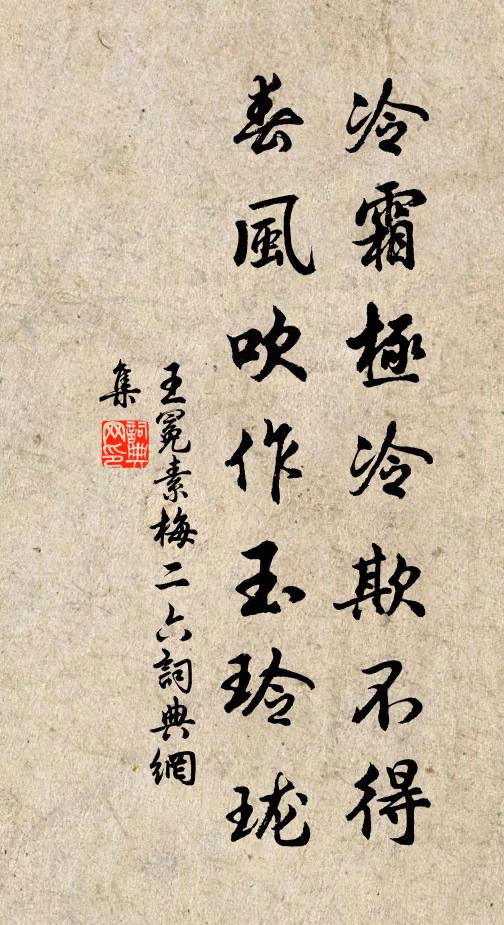 冷霜極冷欺不得
春風吹作玉玲瓏
王冕素梅二六詞典網
集
詞典网印